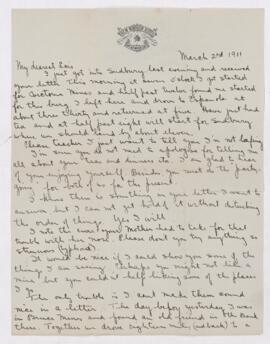 March 2nd 1911
My dearest Lois
I just got into Sudbury last evening and received
your letter. This morning at seven o'clock I got started
for Creighton Mines and half past twelve found me started
for this burg. I left here and drove to Espanola at
about three thirty and returned at five. Have just had
tea and at half past eight will start for Sudbury
where we should land by about eleven.
Please teacher I just want to tell you I'm not
I'm sure you did not need to apologize for telling me
all about your teas and dinners etc. I am glad to hear
of you enjoying yourself. Besides you must do the
for both of us for the present.
I know there is something in your letter I want to
answer but I can not get hold of it without disturbing
the order of things. Yes I will
I note the cure your Mother had to take for that
trouble with her nose. Please don't you try anything so
strenuous (typhoid)
It would be nice if I could show you some of the
things I am seeing. Perhaps you might not like a
mine but you couldn't help liking some of the places
I go.
The only trouble is I can't make them sound
nice in a letter. The day before yesterday I was
in Bruce Mines and found an old friend in the Bank
there. Together we drove eighteen miles (and back) to a